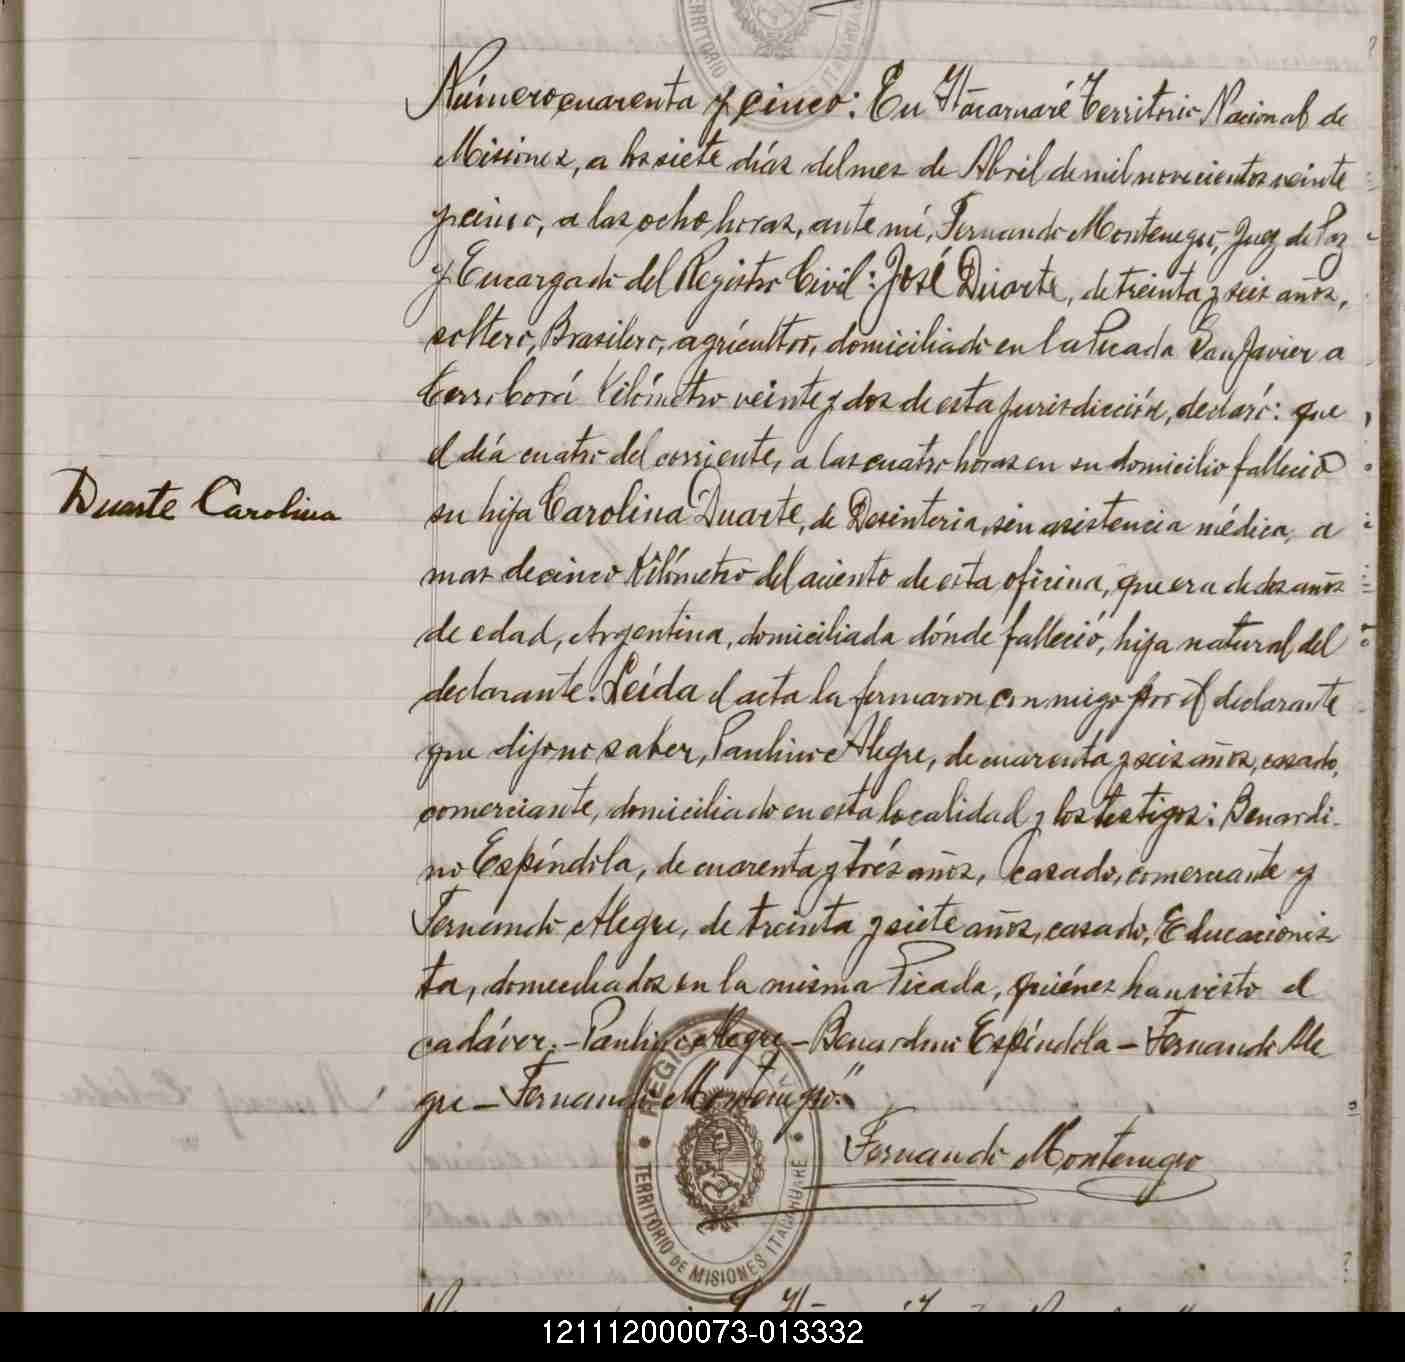 Número cuarenta y cinco: En Itacaruaré Territorio Nacional de
Misiones, a los siete días del mes de Abril de mil novecientos veinte
y cinco, a las ocho horas, ante mí, Fernando Montenegro, Juez de Paz
y Encargado del Registro Civil: José Duarte, de treinta y seis años,
soltero, Brasilero, agricultor, domiciliado en la Picada San Javier a
Cerro Corá Kilómetro veinte y dos de esta jurisdicción, declaró: que
el día cuatro del corriente, a las cuatro horas en su domicilio falleció
Duarte Carolina
su hija Carolina Duarte, de Desinteria, sin asistencia médica, a
mas de cinco Kilómetro del aciento de esta oficina, que era de dos años
de edad, Argentina, domiciliada dónde falleció, hija natural del
declarante. Leída el acta la firmaron conmigo por el declarante
que dijo no saber, Paulino Alegre, de cuarenta y seis años, casado,
comerciante, domiciliado en esta localidad y los testigos: Benardi-
no Espíndola, de cuarenta y trés años, casado, comerciante y
Fernando Alegre, de treinta y siete años, casado, Educacionis
ta, domiciliados en la misma Picada, quiénes han visto el
cadáver.- Paulino Alegre - Benardino Espíndola - Fernando Ale
gre - Fernando Montenegro."
Fernando Montenegro
REGISTRO CIVIL
TERRITORIO DE MISIONES ITACARUARE
121112000073-013332